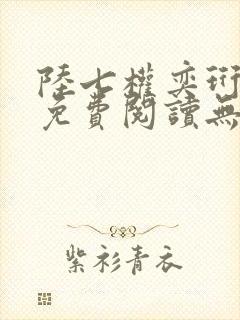 陸七權奕珩
免費閱讀無
紫衫青衣